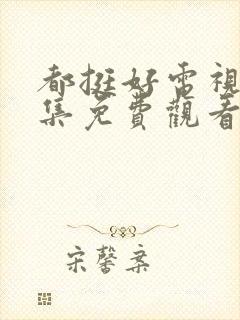 都挺好電視
集免費觀看
宋馨案